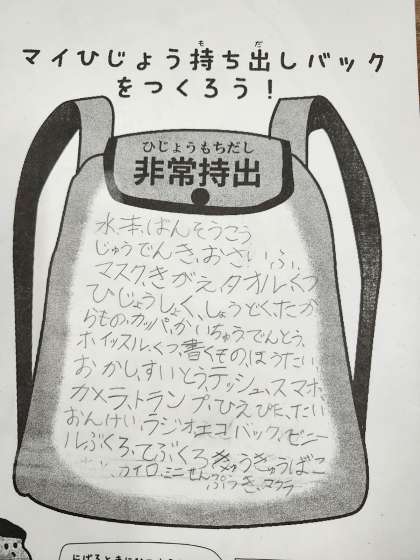 マイひじょう持ち出しバック
も だ
をつくろう！
ひじょうもちだし
非常持出
水、本、ばんそうこう
じゅうでんき、おさいふ、
マスク、きがえ、タオル、くつ
ひじょうしょく、しょうどく、たか
らもの、カッパ、かいちゅうでんとう、
ホイッスル、くつ、書くもの、ほうたい、
おかし、すいとう、テッシュ、スマホ、
カメラ、トランプ、ひえぴた、たい
おんけい、ラジオ、エコバック、ビニー
ルぶくろ、てぶくろ、きゅうきゅうばこ
カイロ、ミニせんぷうき、マクラ